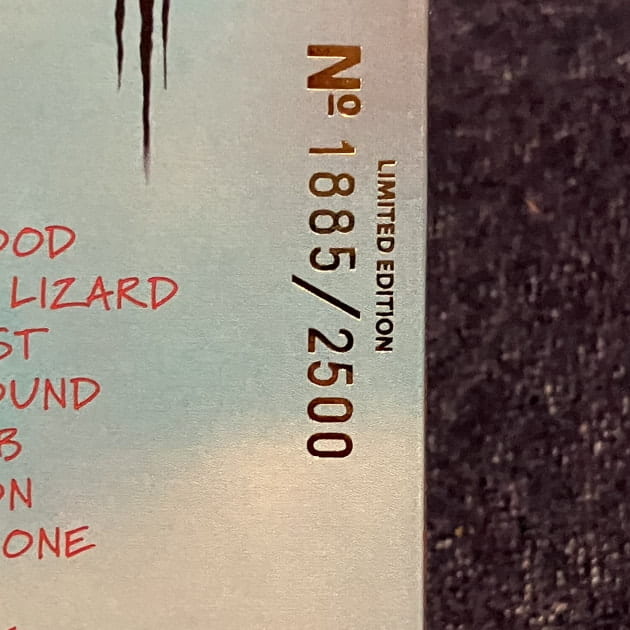 OOD
LIZARD
ST
OUND
B
ON
ONE
LIMITED EDITION
Nº 1885/2500